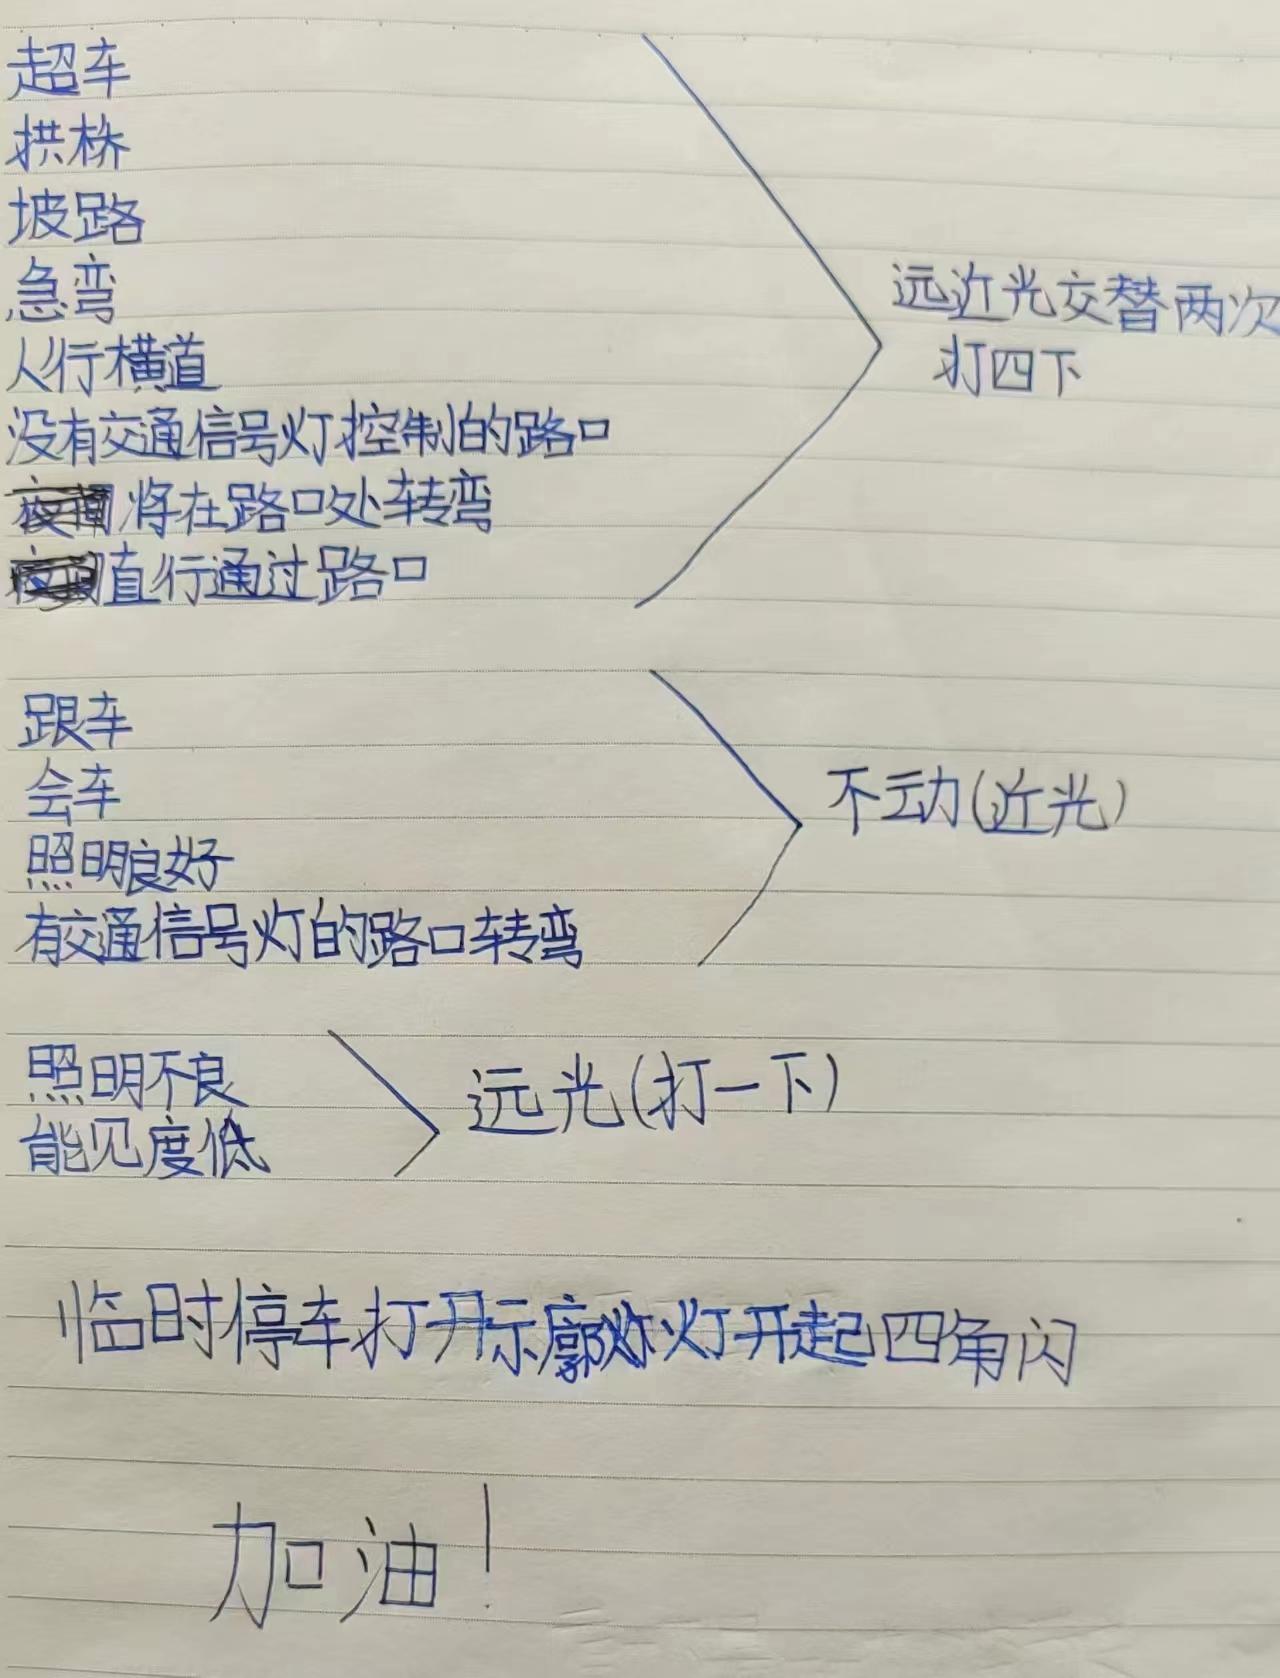 超车
拱桥
坡路
急弯
远近光交替两次
打四下
人行横道
没有交通信号灯控制的路口
将在路口处转弯
直行通过路口
跟车
会车
不动(近光)
照明良好
有交通信号灯的路口转弯
照明不良
远光(打一下)
能见度低
临时停车打开示廓灯开起四角闪
加油!